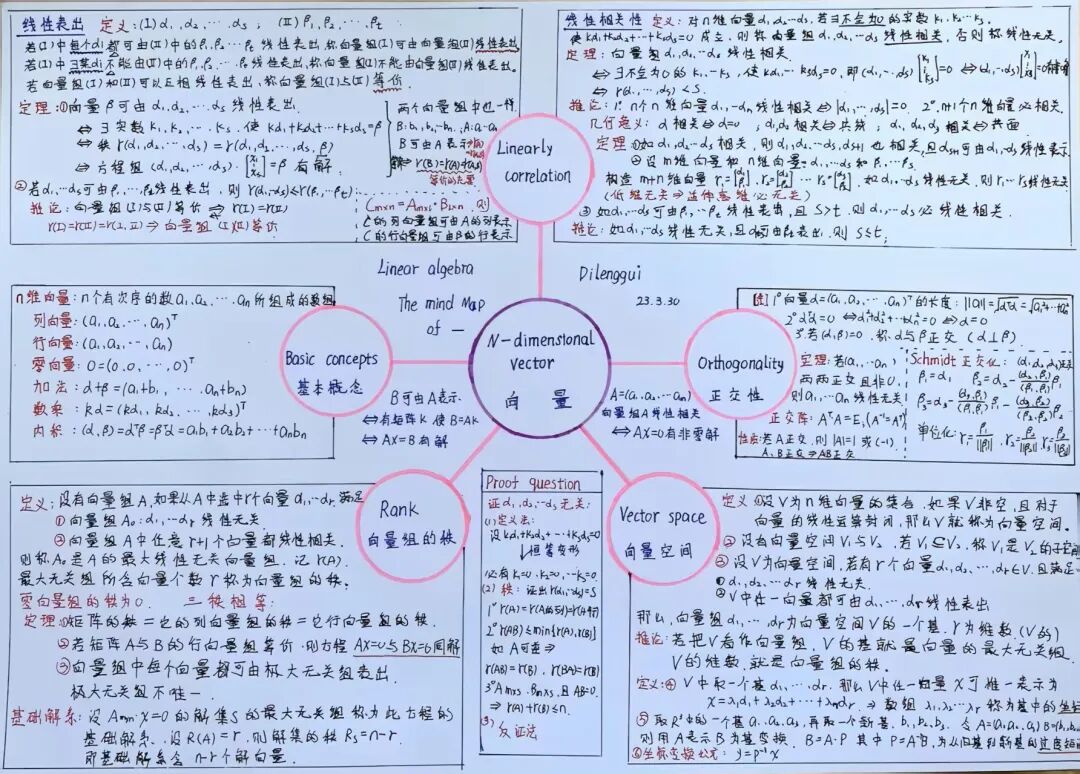 线性表出 定义:(Ⅰ) α₁, α₂ … αs ; (Ⅱ) β₁, β₂, … βt
若(Ⅰ)中每个αi都可由(Ⅱ)中的β₁,β₂…βt 线性表出,称向量组(Ⅰ)可由向量组(Ⅱ)线性表出
若(Ⅰ)中∃某αi不能由(Ⅱ)中的β₁,β₂…βt线性表出,称向量组(Ⅰ)不能由向量组(Ⅱ)线性表出。
若向量组(Ⅰ)和(Ⅱ)可以互相线性表出,称向量组(Ⅰ)与(Ⅱ)等价
定理:①向量β可由α₁,α₂,…αs 线性表出
⇔ ∃ 实数 k₁, k₂, … ks . 使 kα₁+kα₂+…+ksαs=β
⇔ 秩 r(α₁,α₂…αs) = r(α₁,α₂…αs, β)
⇔ 方程组 (α₁,α₂…αs)·[x₁ ⋮ xs]=β 有解
②若α₁…αs可由β₁…βt线性表出, 则 r(α₁…αs)≤r(β₁…βt);
推论:向量组(Ⅰ)与(Ⅱ)等价 ⇒ r(Ⅰ)=r(Ⅱ)
r(Ⅰ)=r(Ⅱ)=r(Ⅰ,Ⅱ) ⇒ 向量组(Ⅰ)(Ⅱ)等价
两个向量组中也一样
B:b₁,b₂…bn ; A:a₁…an
B可由A表示
r(B)=r(A)=r(AB)
等价的充要
Cmxn = Amxs·Bsxn 则
C的列向量组可由A的列表示
C的行向量组可由B的行表示
Linearly
correlation
线性相关性 定义:对n维向量α₁,α₂…αs, 若∃不全为0的实数 k₁,k₂…ks.
使 kα₁+kα₂+…+ksαs=0 成立,则称向量组 α₁,α₂…αs 线性相关, 否则称线性无关。
定理:向量组 α₁,α₂…αs 线性相关.
⇔ ∃不全为0的 k₁…ks, 使 kα₁…ksαs=0, 即(α₁…αs)[x₁ ⋮ xs]=0
⇔ r(α₁, …αs) < s.
推论:1° n个n维向量α₁…αn线性相关⇔|α₁,…αs|=0. 2° n+1个n维向量必相关.
几何意义:α相关⇔α=0 ; α₁α₂相关⇔共线 ; α₁,α₂,α₃相关⇔共面
定理 ①如α₁α₂…αs 相关, 则 α₁,α₂…αs,αs+1 也相关
②设m维向量和n维向量:α₁…αs和β₁…βs.
构造 m+n维向量 r₁=[α₁ β₁], r₂=[α₂ β₂] … rs=[αs βs]. 如α₁…αs线性无关, 则r₁…rs线性无关
(低维无关⇒延伸高维必无关)
③如α₁…αs可由β₁…βt线性表出,且s>t. 则α₁…αs必线性相关.
推论:如α₁…αs线性无关,且αi可由βt表出. 则 s≤t;
Linear algebra
The mind Map
of —
Dilenggui
23.3.30
n维向量:n个有次序的数a₁,a₂…an所组成的数组
列向量:(a₁,a₂…,an)ᵀ
行向量:(a₁,a₂,…,an)
零向量:0=(0,0,…,0)ᵀ
加法:α+β=(a₁+b₁, … an+bn)
数乘:kα=(kα₁, kα₂, … ,kα₃)ᵀ
内积:(α,β)=αᵀβ=βᵀα=a₁b₁+a₂b₂+…+anbn
Basic concepts
基本概念
N-dimensional
vector
向 量
Orthogonality
正交性
B可由A表示
⇔有矩阵K 使B=AK
⇔AX=B有解
A=(a₁,a₂…an)
向量组A线性相关
⇔AX=0有非零解
1°向量α=(a₁,a₂,…,an)ᵀ的长度:||α||=√αᵀα=√a₁²+…+an²
2°αᵀα=0⇔a₁²+a₂²+…+an²=0⇔α=0
3°若(α,β)=0 . 称α与β正交 (α⊥β)
定理:若(a₁,…an)
两两正交且非0.
则a₁,…an线性无关
正交阵:AᵀA=E, (A⁻¹=Aᵀ)
性质:若A正交,则|A|=1 或(-1).
A、B正交⇒AB正交
Schmidt 正交化:(α₁,α₂,α₃)
β₁=α₁ β₂=α₂-(α₂,β₁)/(β₁,β₁)β₁
β₃=α₃-(α₃,β₁)/(β₁,β₁)β₁-(α₃,β₂)/(β₂,β₂)β₂
单位化:r₁=β₁/||β₁||, r₂=β₂/||β₂||, r₃=β₃/||β₃||
定义:设有向量组A,如果从A中选中r个向量α₁…αr 满足
①向量组A₀:α₁…αr 线性无关
②向量组A中任意r+1个向量都线性相关.
则称A₀是A的最大线性无关向量组. 记r(A).
最大无关组所含向量个数r称为向量组的秩。
零向量组的秩为0. 三秩相等:
定理①矩阵的秩=它的列向量组的秩=它行向量组的秩.
②若矩阵A与B的行向量组等价,则方程 AX=0与BX=0同解
③向量组中每个向量都可由极大无关组表出.
极大无关组不唯一.
基础解系:设Amxn·x=0的解集S的最大无关组称为此方程的
基础解系. 设R(A)=r,则解集的秩Rs=n-r.
即基础解系含n-r个解向量.
Rank
向量组的秩
Proof question
证α₁,α₂…αs无关:
(1)定义法:
设kα₁+kα₂+…+ksαs=0
恒等变形
必有k₁=0,k₂=0,…ks=0.
(2) 秩:证出r(α₁…αs)=s
1° r(A)=r(A的列)=r(A行)
2° r(AB)≤min{r(A),r(B)}
如A可逆⇒
r(AB)=r(B), r(BA)=r(B)
3° Amxs,Bmxs,且AB=0.
⇒r(A)+r(B)≤n.
(3) 反证法
Vector space
向量空间
定义①设V为n维向量的集合. 如果V非空,且对于
向量的线性运算封闭,那么V就称为向量空间。
②设有向量空间V₁与V₂. 若V₁⊆V₂, 称V₁是V₂的子空间
③设V为向量空间,若有r个向量α₁,α₂…αr∈V.且满足
❶α₁,α₂…αr线性无关
❷V中任一向量都可由α₁,…αr线性表出
那么,向量组α₁,…αr为向量空间V的一个基, r为维数(V的)
推论:若把V看作向量组, V的基就是向量的最大无关组
V的维数,就是向量组的秩。
定义:④V中取一个基α₁,…αr. 那么V中任一向量x可唯一表示为
x=λ₁α₁+λ₂α₂+…+λrαr. ⇒ 数组λ₁,λ₂…λr称为基中的坐标
⑤取R³中的一个基a₁,a₂,a₃, 再取一个新基, b₁,b₂,b₃. 令A=(a₁,a₂,a₃)
则用A表示B为基变换. B=A·P 其中P=A⁻¹B,为从旧基到新基的过渡矩阵
⑥坐标变换公式:y=P⁻¹x